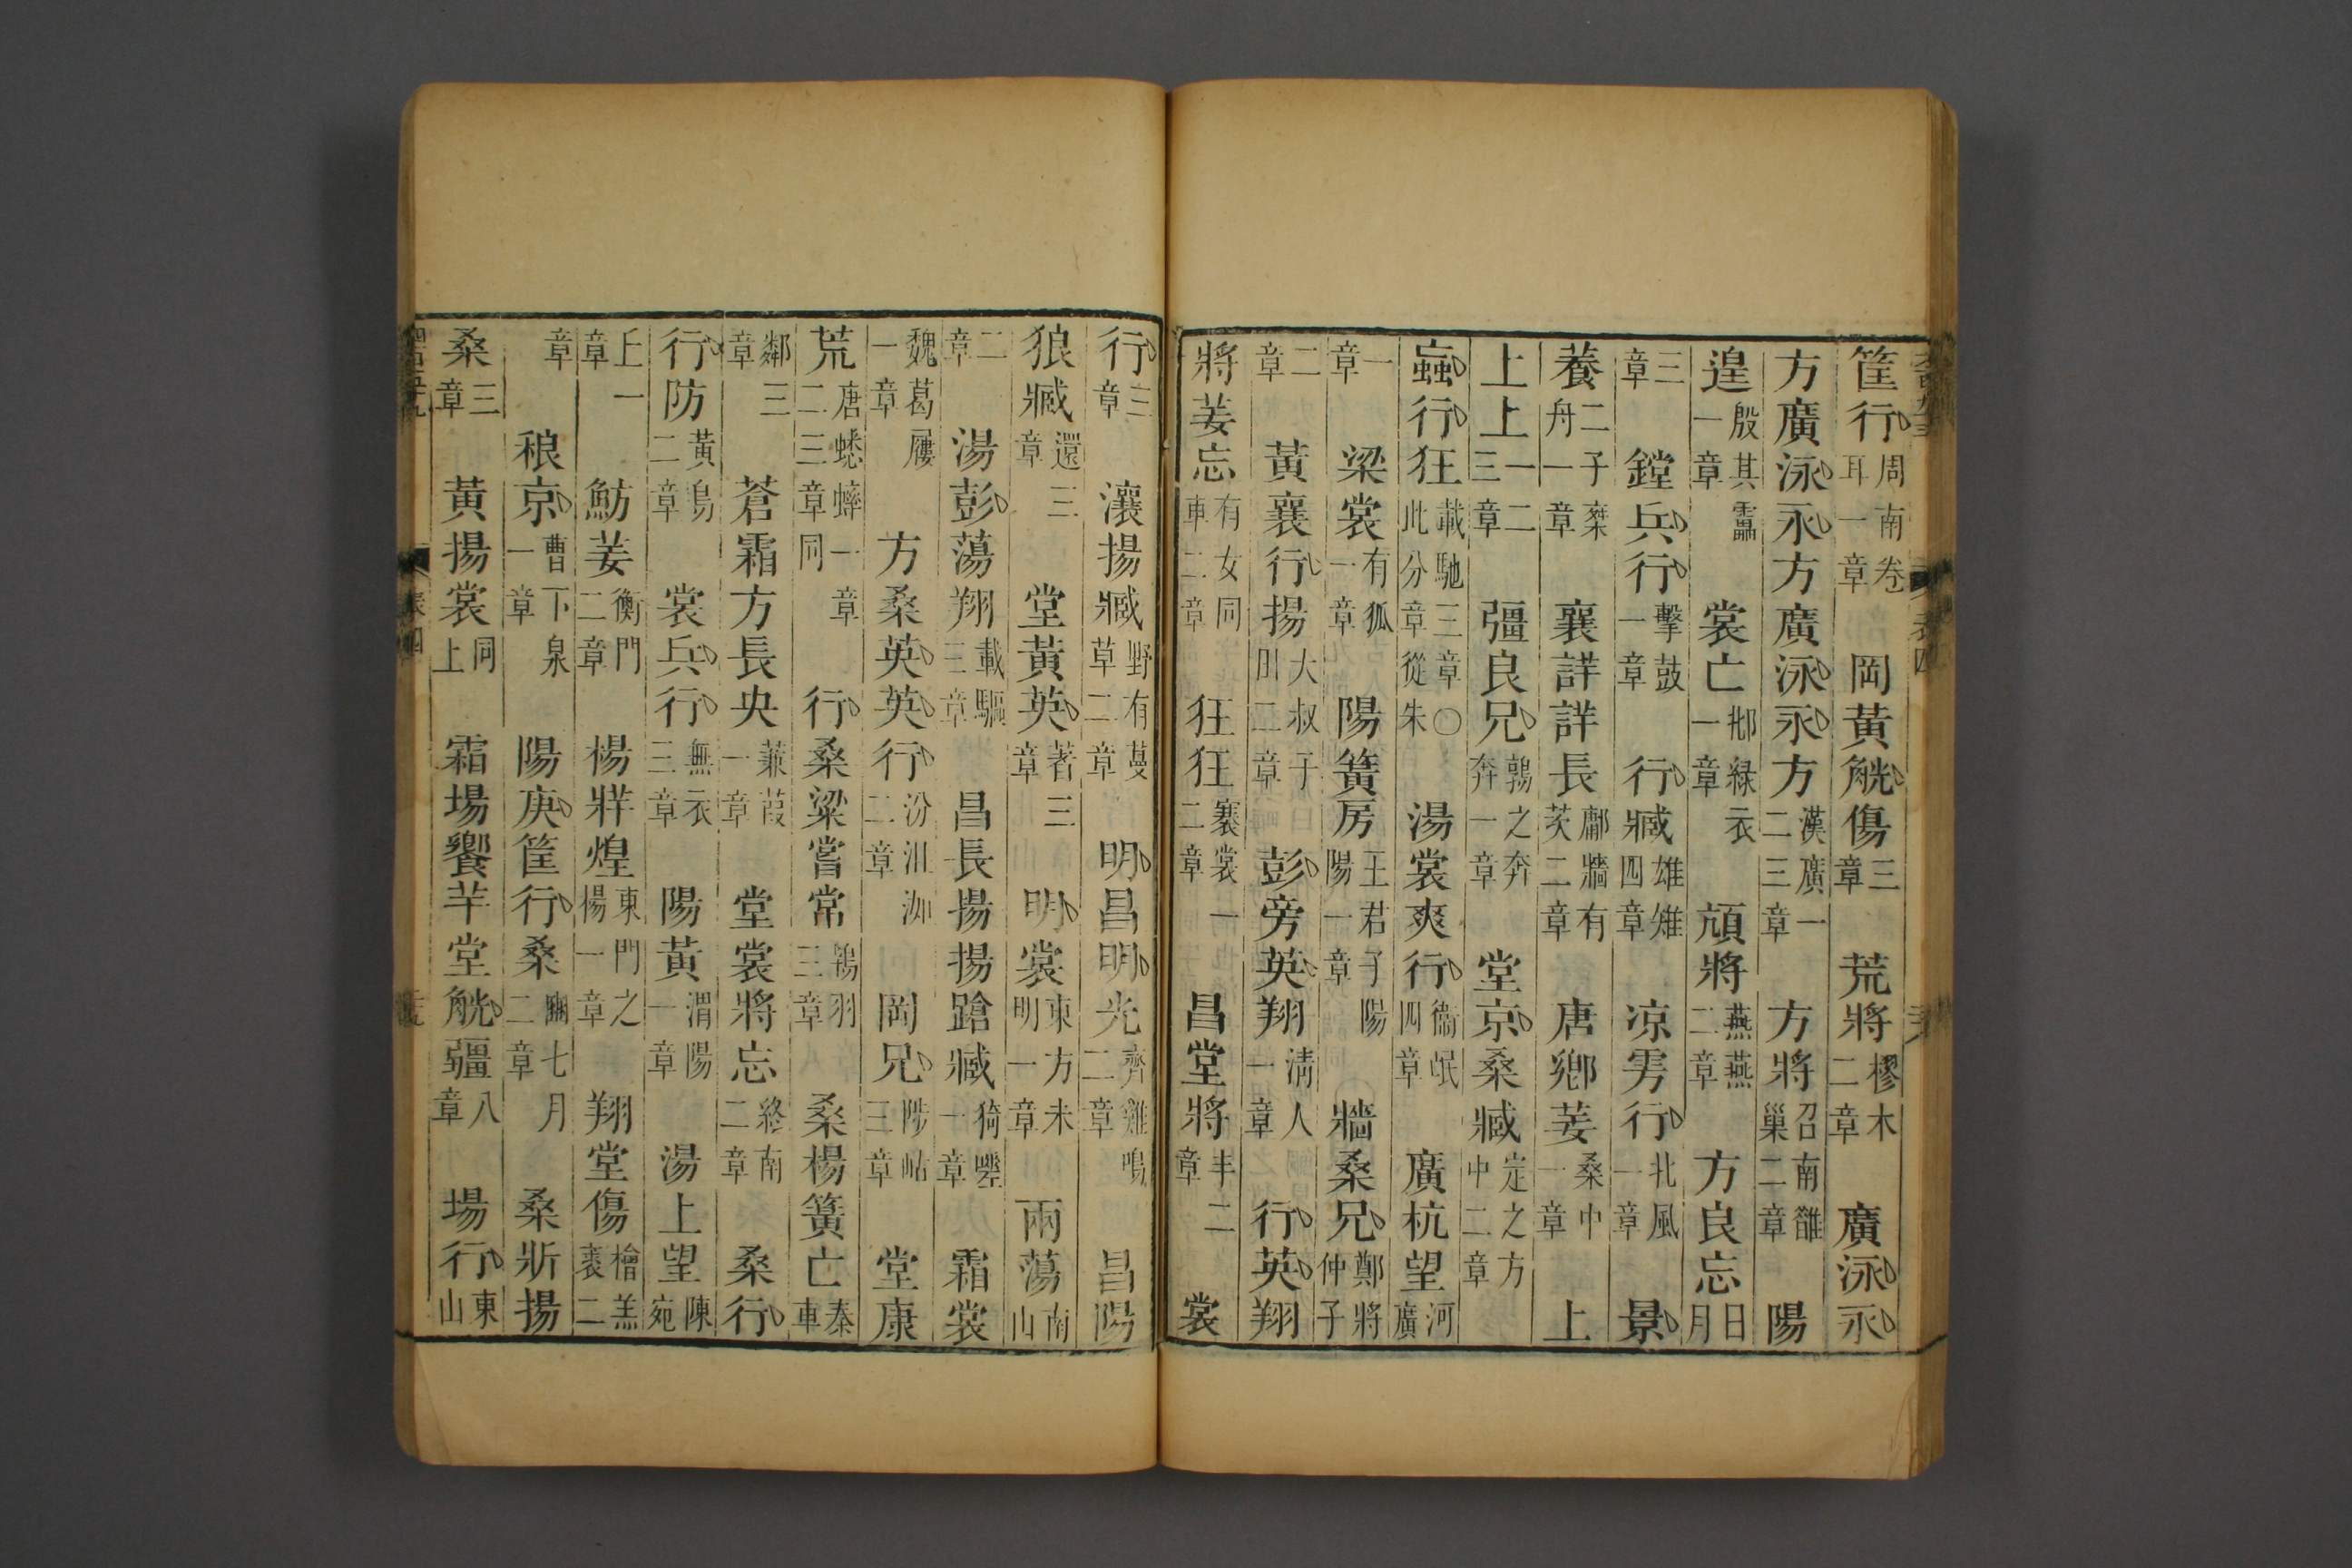 筐行周南卷耳一章 岡黃觥傷三章 荒將樛木二章 廣泳永
方廣泳永方廣泳永方漢廣一二三章 方將召南鵲巢二章 陽
遑殷其靁一章 裳亡邶緑衣一章 頏將燕燕二章 方良忘日月
三章 鏜兵行擊鼓一章 行臧雄雉四章 凉雱行北風一章 景
養二子椉舟一章 襄詳詳長鄘牆有茨二章 唐鄉姜桑中一章 上
上上一二三章 彊良兄鶉之奔奔一章 堂京桑臧定之方中二章
蝱行狂載馳三章〇此分章從朱 湯裳爽行衞岷四章 廣杭望河廣
一章 梁裳有狐一章 陽簧房王君子陽陽一章 牆桑兄鄭將仲子
二章 黃襄行揚大叔于田二章 彭旁英翔清人一章 行英翔
將姜忘有女同車二章 狂狂褰裳一二章 昌堂將丰二章 裳
行三章 瀼揚臧野有蔓草二章 明昌明光齊雞鳴二章 昌陽
狼臧還三章 堂黃英著三章 明裳東方未明一章 兩蕩南山
二章 湯彭蕩翔載驅三章 昌長揚揚蹌臧猗嗟一章 霜裳
魏葛屨一章 方桑英英行汾沮洳二章 岡兄陟岵三章 堂康
荒唐蟋蟀一章二三章同 行桑粱嘗常鴇羽三章 桑楊簧亡秦車
鄰三章 蒼霜方長央蒹葭一章 堂裳將忘終南二章 桑行
行防黃鳥二章 裳兵行無衣三章 陽黃渭陽一章 湯上望陳宛
丘一章 魴姜衡門二章 楊牂煌東門之楊一章 翔堂傷檜羔裘二
章 稂京曹下泉一章 陽庚筐行桑豳七月二章 桑斨揚
桑三章 黃揚裳同上 霜場饗羊堂觥疆八章 場行東山